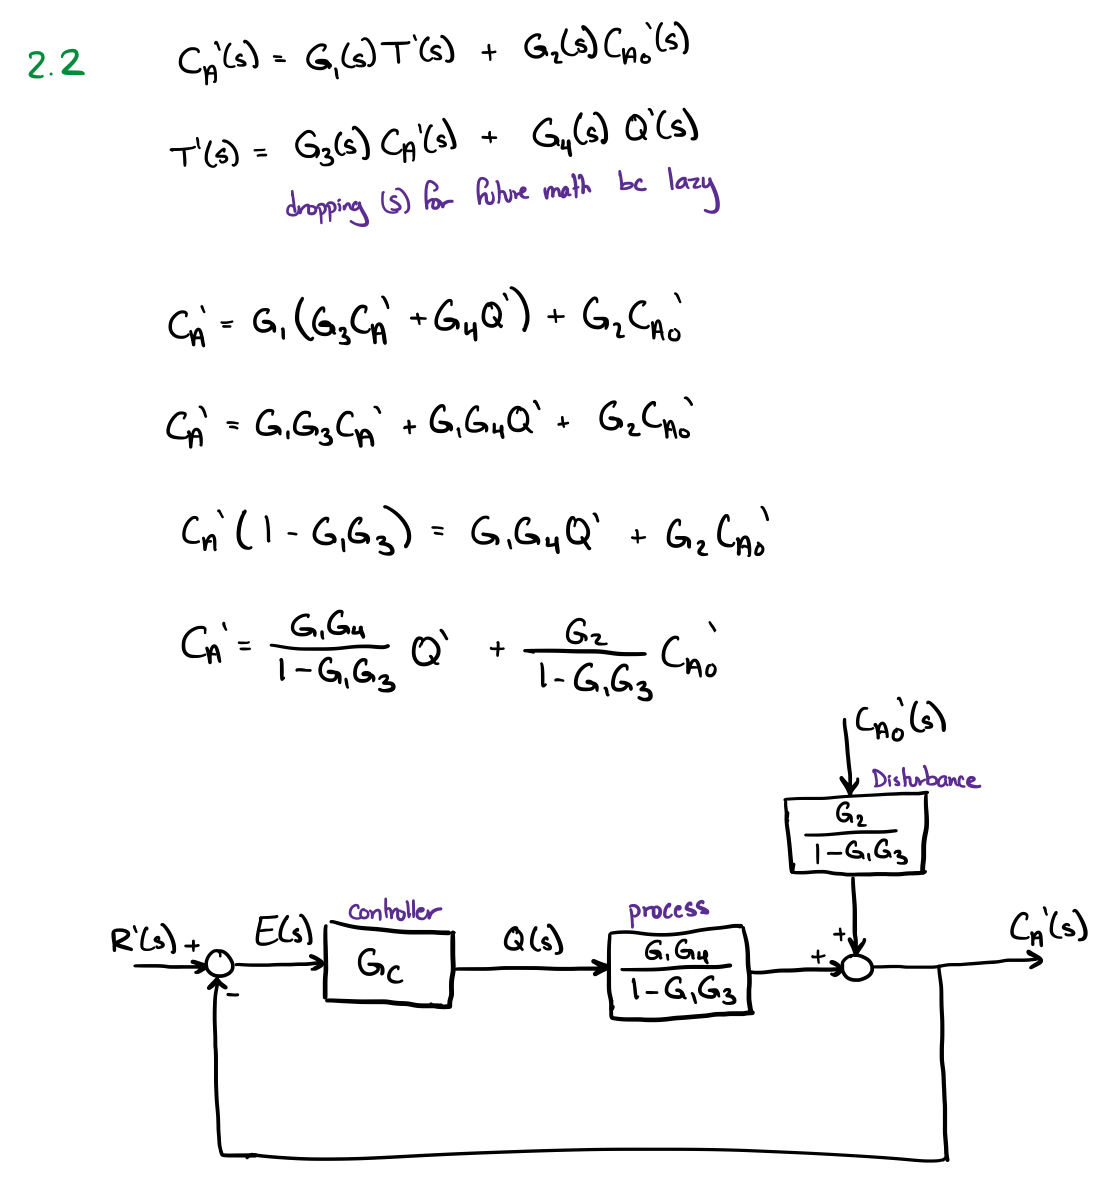 2.2
C_A'(s) = G₁(s)T'(s) + G₂(s)C_A0'(s)
T'(s) = G₃(s)C_A'(s) + G₄(s)Q'(s)
dropping (s) for future math bc lazy
C_A' = G₁(G₃C_A' + G₄Q') + G₂C_A0'
C_A' = G₁G₃C_A' + G₁G₄Q' + G₂C_A0'
C_A'(1 - G₁G₃) = G₁G₄Q' + G₂C_A0'
C_A' = G₁G₄ / (1 - G₁G₃) Q' + G₂ / (1 - G₁G₃) C_A0'
C_A0'(s)
Disturbance
G₂
1 - G₁G₃
R'(s) +
-
E(s)
controller
G_C
Q(s)
process
G₁G₄
1 - G₁G₃
+
+
C_A'(s)